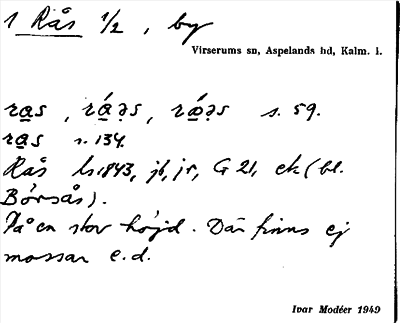 1 Rås 1/2, by
Virserums sn, Aspelands hd, Kalm. l.
ra̲s, rá̲ə̣s, rǽə̣s s. 59.
ra̲s s. 134.
Rås ls 1843, jb, jr, G 21, ek (bl.
Börsås).
På en stor höjd. Där finns ej
mossar e.d.
Ivar Modéer 1949